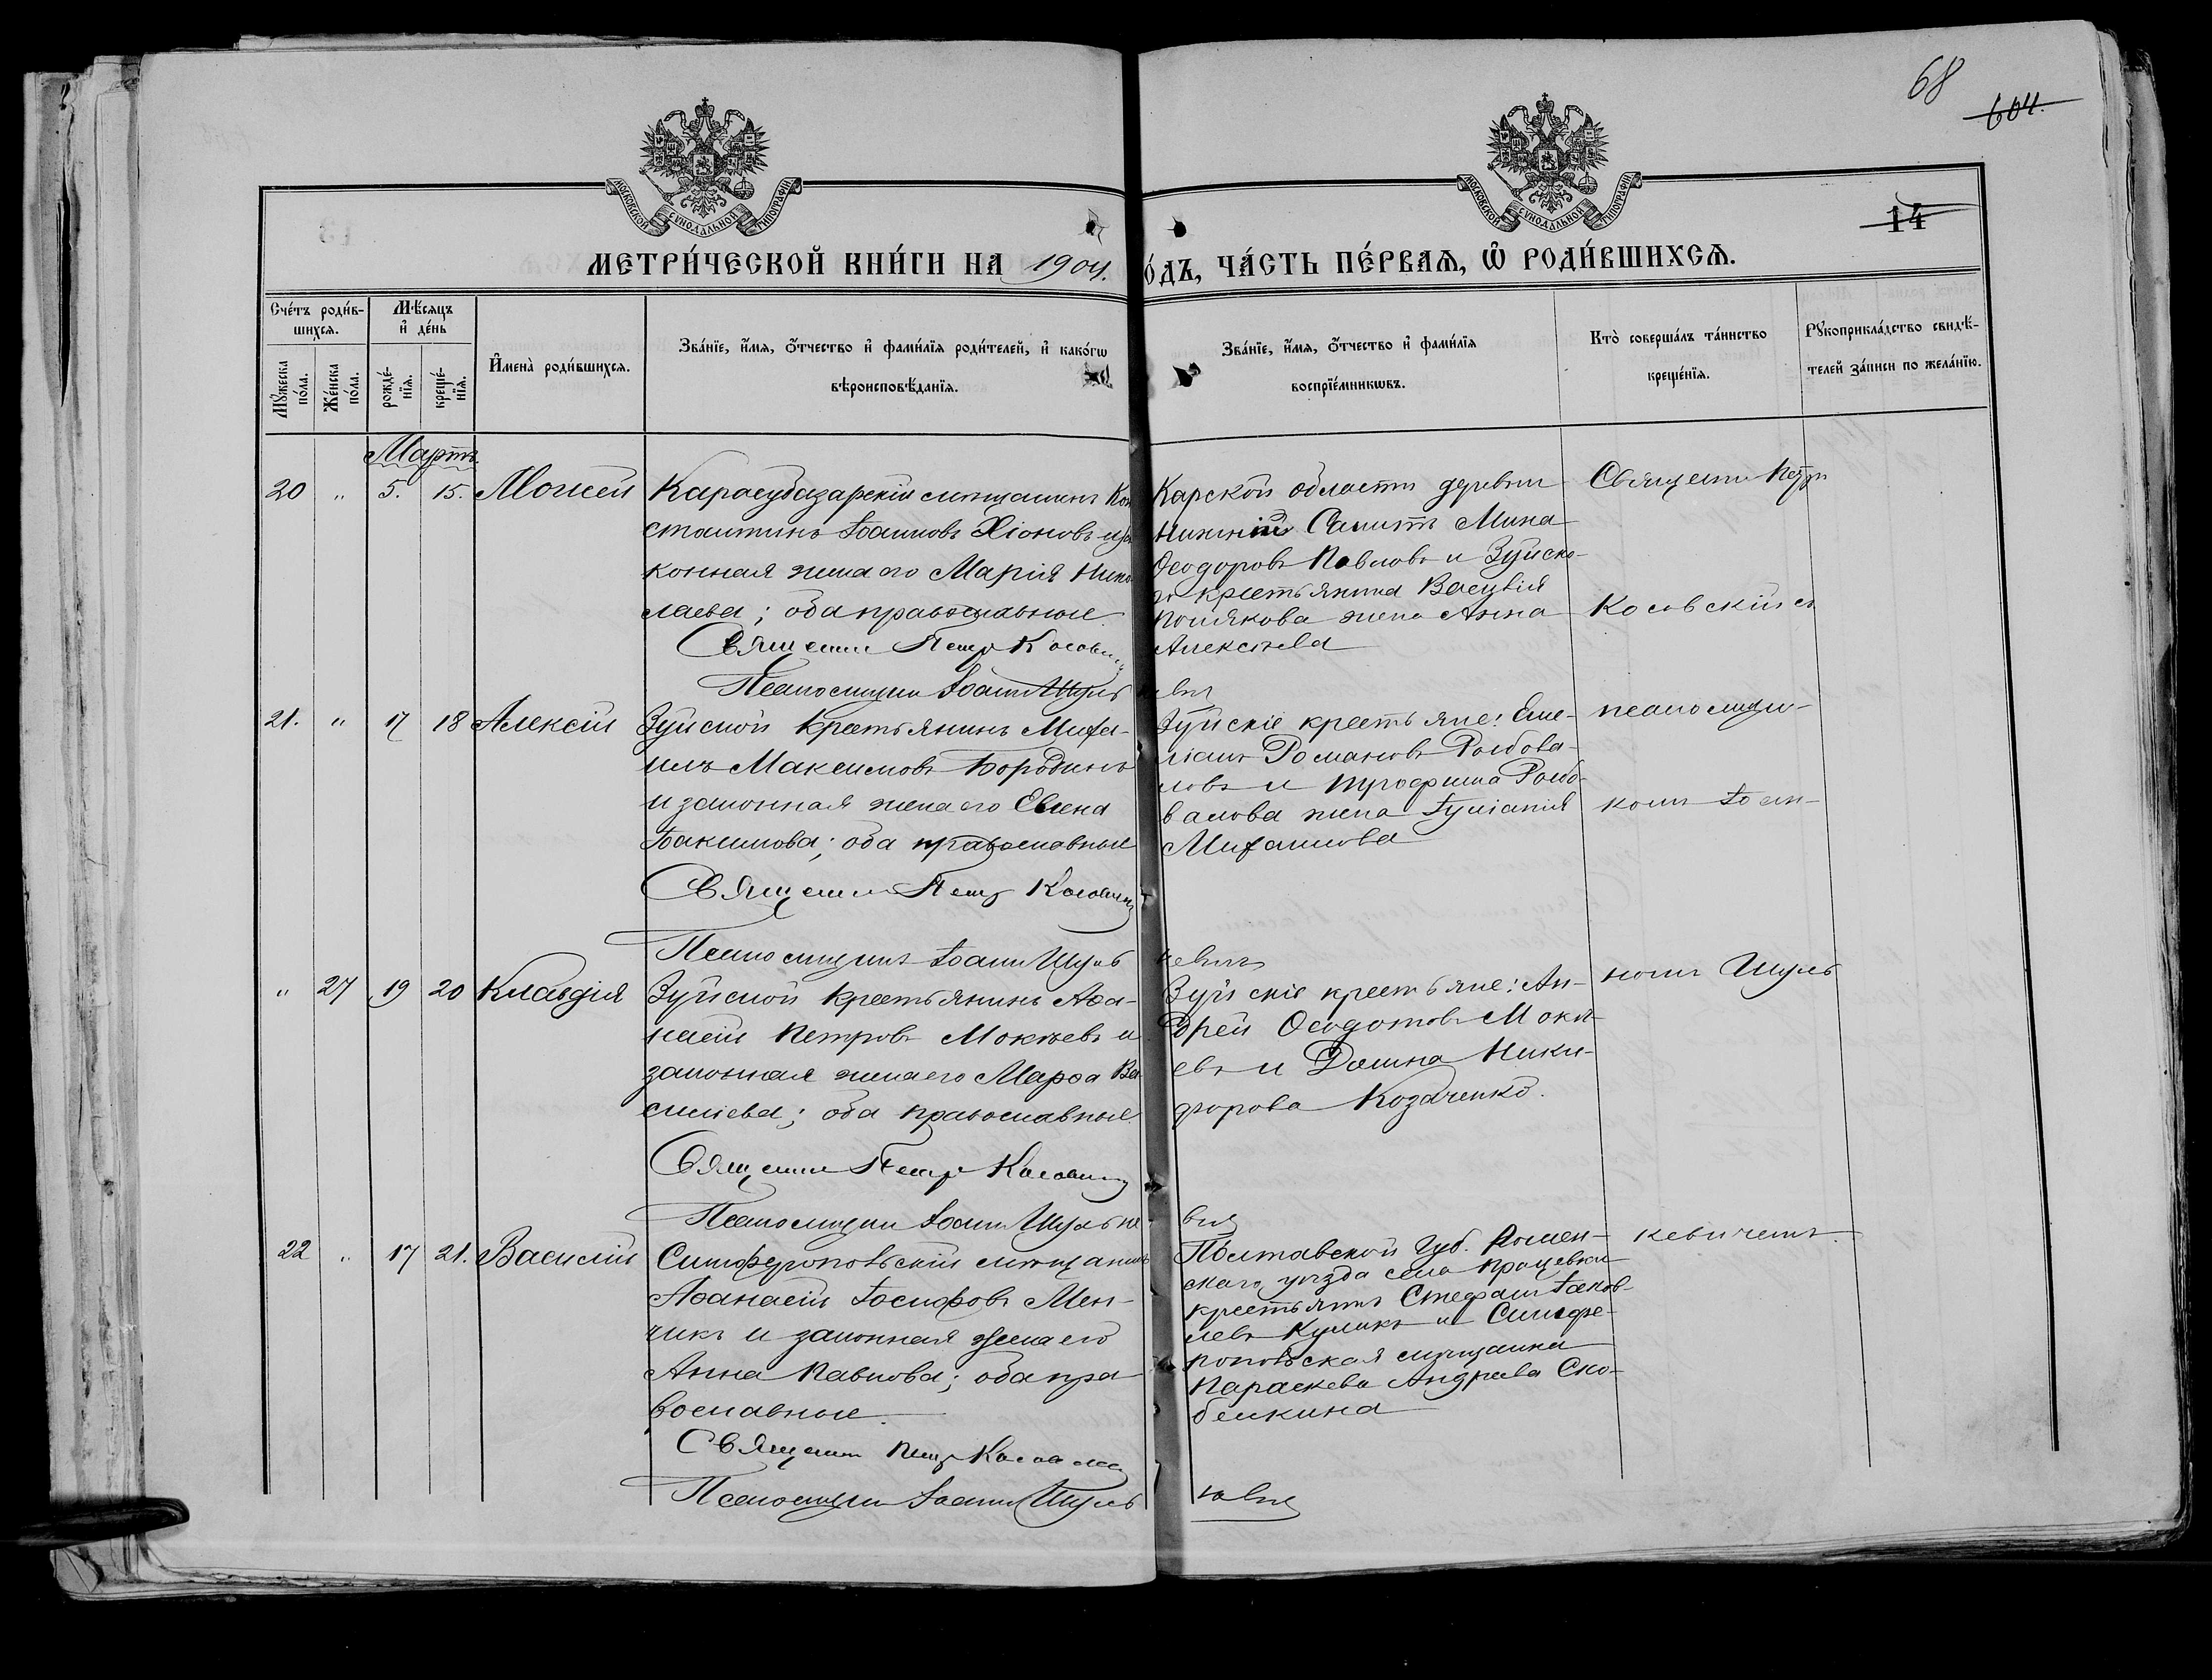 68
604.
МОСКОВСКОЙ СѴНОДАЛЬНОЙ ТИПОГРАФІИ
МОСКОВСКОЙ СѴНОДАЛЬНОЙ ТИПОГРАФІИ
14
МЕТРИ́ЧЕСКОЙ КНИ́ГИ НА 1904.
О́ДЪ, ЧА́СТЬ ПЕ́РВАѦ, Ѡ҆ РОДИ́ВШИХСѦ.
Сче́тъ роди́в-
шихсѧ.
Мꙋ́жеска по́ла.
Же́нска по́ла.
Мѣ́сѧцъ
и҆ де́нь
рожде́-
нїѧ.
креще́-
нїѧ.
И҆мена̀ роди́вшихсѧ.
Зва́нїе, и҆́мѧ, ѻ҆́тчество и҆ фами́лїѧ роди́телей, и҆ како́гѡ
вѣроисповѣ́данїѧ.
Зва́нїе, и҆́мѧ, ѻ҆́тчество и҆ фами́лїѧ
воспрїе́мникѡвъ.
Кто̀ соверша́лъ та́инство
креще́нїѧ.
Рꙋкоприкла́дство свидѣ́-
телей за́писи по жела́нїю.
Мартъ
20 " 5. 15. Моисей
Карасубазарскій мѣщанинъ Кон
стантинъ Іоанновъ Хіоновъ и за
конная жена его Марія Нико
лаева; оба православные
Священн Петр Косовск
Псаломщикъ Іоаннъ Шуль
Карской области деревни
Нижній Самитъ Мина
Ѳеодоровъ Павловъ и Зуйска-
го крестьянина Василія
Полякова жена Анна
Алексѣева
кевич
Священн Петр
Косовскій съ
21. " 17 18 Алексій
Зуйской крестьянинъ Миха-
илъ Максимовъ Бородинъ
и законная жена его Елена
Іоакимова; оба православные
Священн Петр Косовск
Псаломщикъ Іоаннъ Шуль
Зуйскіе крестьяне: Еме-
ліанъ Романовъ Ролдова-
ловъ и Трофима Ролдо-
валова жена Іуліанія
Михаилова
кевичъ
псаломщи-
комъ Іоан-
" 27 19 20 Клавдія
Зуйской крестьянинъ Аѳа-
насій Петровъ Мокѣевъ и
законная жена его Марѳа Ва
силіева; оба православные
Священн Петр Косовск
Псаломщикъ Іоаннъ Шульке
Зуйскіе крестьяне: Ан-
дрей Ѳеодотовъ Моки-
евъ и Домна Ники-
форова Козаченко.
вич
номъ Шуль
22 " 17 21. Василій
Симферопольскій мѣщанинъ
Аѳанасій Іосифовъ Мен-
чикъ и законная жена его
Анна Павлова; оба пра
вославные
Священн Петр Косовск
Псаломщикъ Іоаннъ Шуль
Полтавской губ. Ромен-
скаго уѣзда села Процевки
крестьянинъ Стефанъ Іаков-
левъ Куликъ и Симфе-
ропольская мѣщанка
Параскева Андреева Ско-
белкина
кевич
кевичемъ.